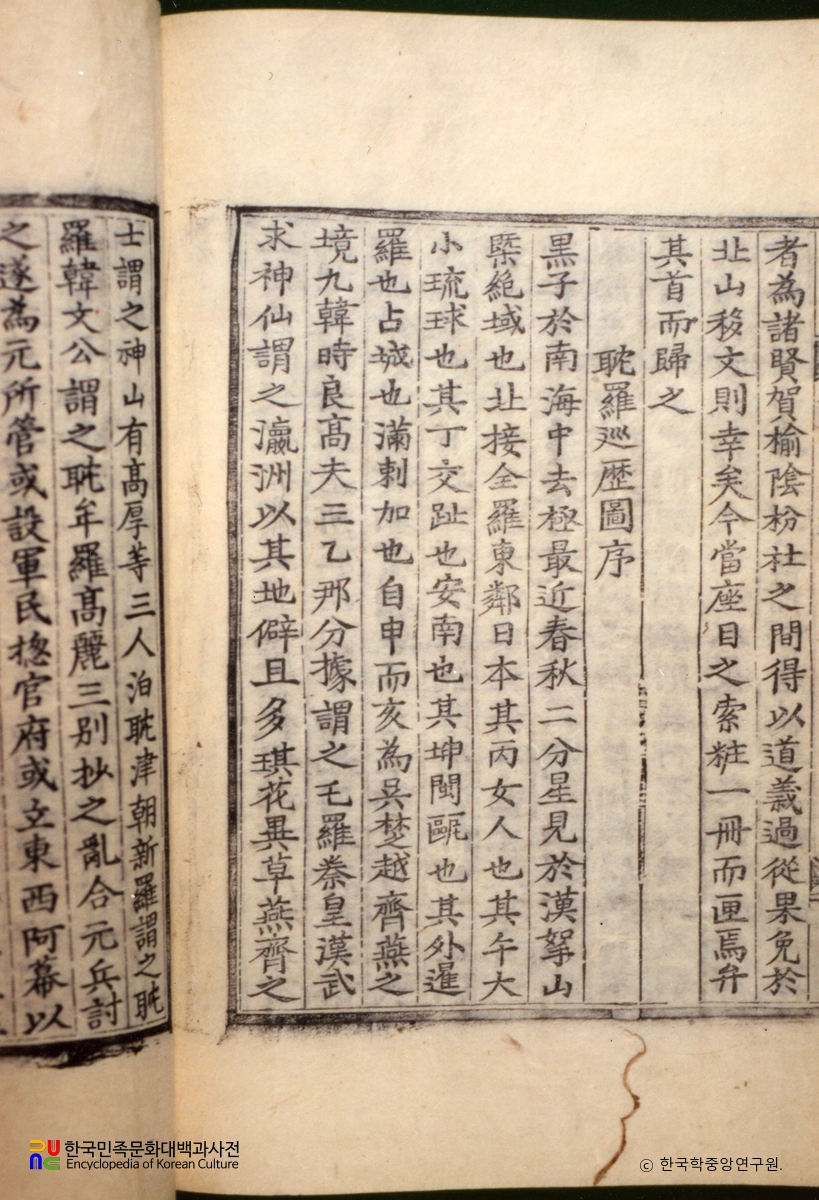 者為諸賢賀榆陰枌社之間得以道義過從果免於
北山移文則幸矣今當座目之索粧一冊而匣焉弁
其首而歸之
耽羅巡歷圖序
黑子於南海中去極最近春秋二分星見於漢拏山
槩絕域也北接全羅東鄰日本其丙女人也其午大
小琉球也其丁交趾也安南也其坤閩甌也其外暹
羅也占城也滿剌加也自申而亥為吳楚越齊燕之
境九韓時良高夫三乙那分據謂之乇羅秦皇漢武
求神仙謂之瀛洲以其地僻且多琪花異草燕齊之
士謂之神山有高厚等三人泊耽津朝新羅謂之耽
羅韓文公謂之耽牟羅高麗三別抄之亂合元兵討
之遂為元所管或設軍民摠官府或立東西阿幕以
한국민족문화대백과사전
Encyclopedia of Korean Culture
© 한국학중앙연구원.